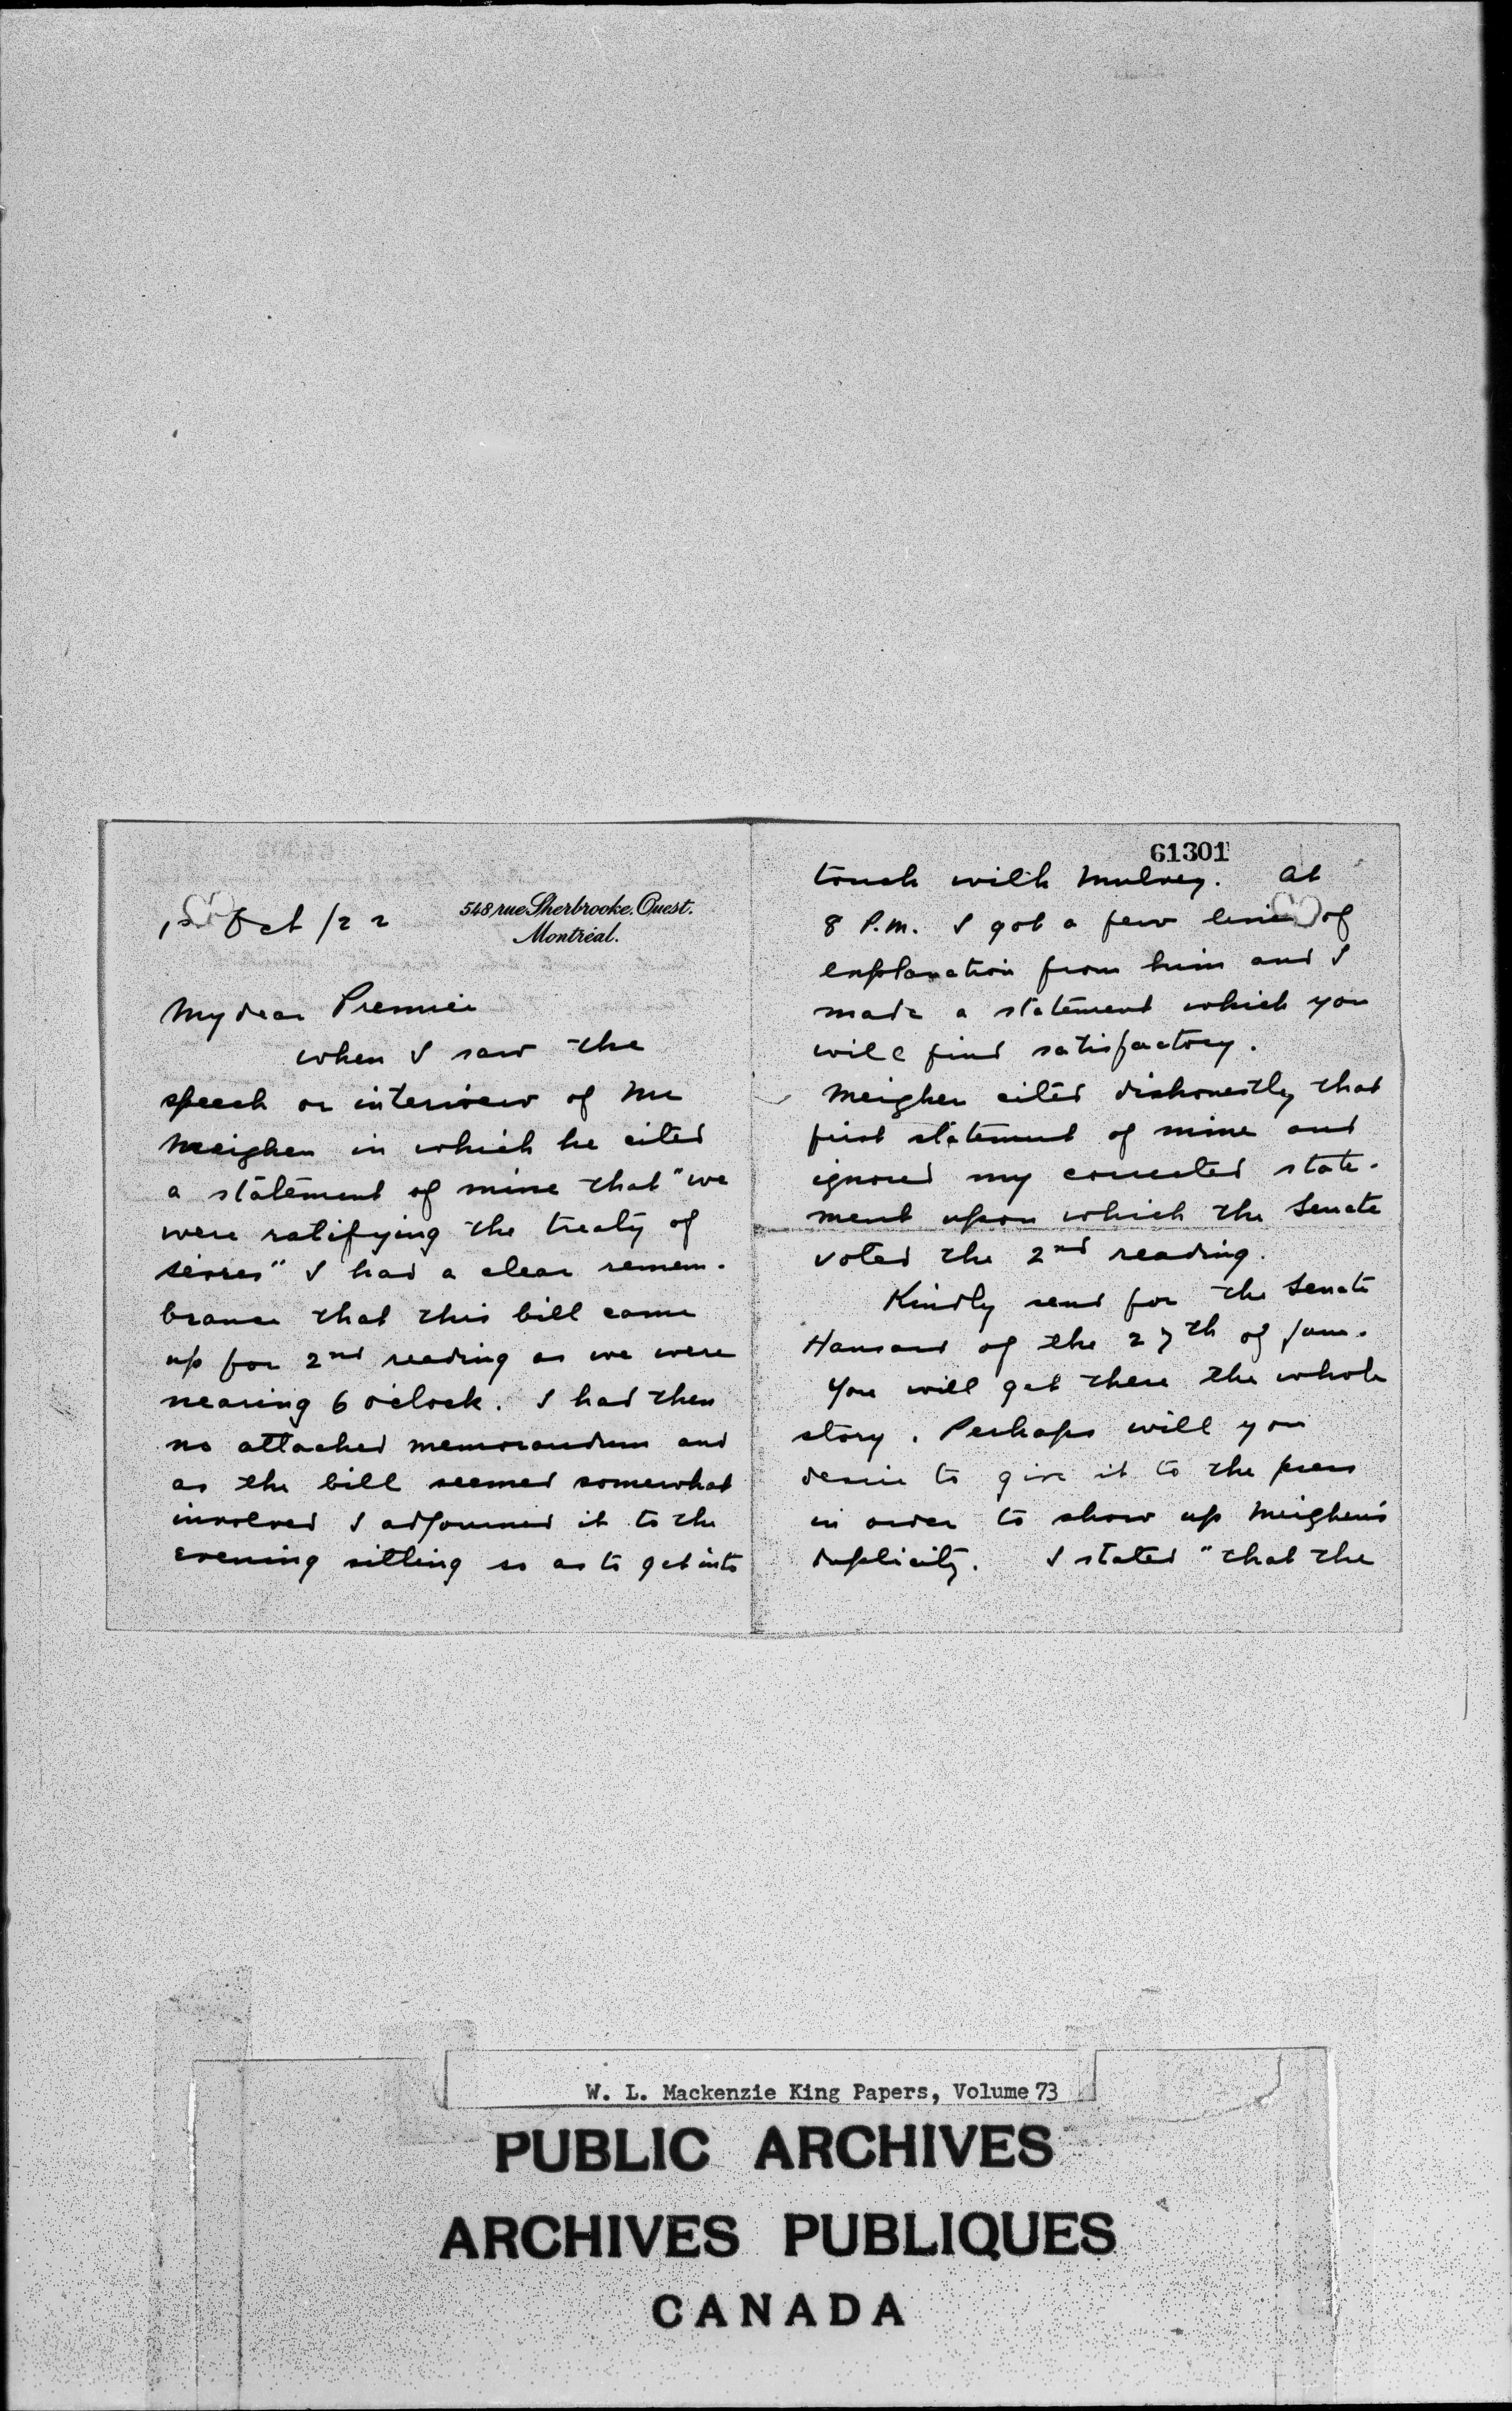 548 rue Sherbrooke. Ouest.
Montréal.
Oct /22
My dear Premier
when I saw the
speech or interview of Mr
Meighen in which he cited
a statement of mine that "we
were ratifying the treaty of
sevres" I had a clear remem-
brance that this bill came
up for 2nd reading as we were
nearing 6 o'clock. I had then
no attached memorandum and
as the bill seemed somewhat
involved I adjourned it to the
evening sitting so as to get into
61301
touch with Mulvey. At
8 P.M. I got a few lines of
explanation from him and I
made a statement which you
will find satisfactory.
Meighen cited dishonestly that
first statement of mine and
ignored my corrected state-
ment upon which the Senate
voted the 2nd reading.
Kindly send for the Senate
Hansard of the 27th of June.
You will get there the whole
story. Perhaps will you
desire to give it to the press
in order to show up Meighen's
duplicity. I stated "that the
W. L. Mackenzie King Papers, Volume 73
PUBLIC ARCHIVES
ARCHIVES PUBLIQUES
CANADA